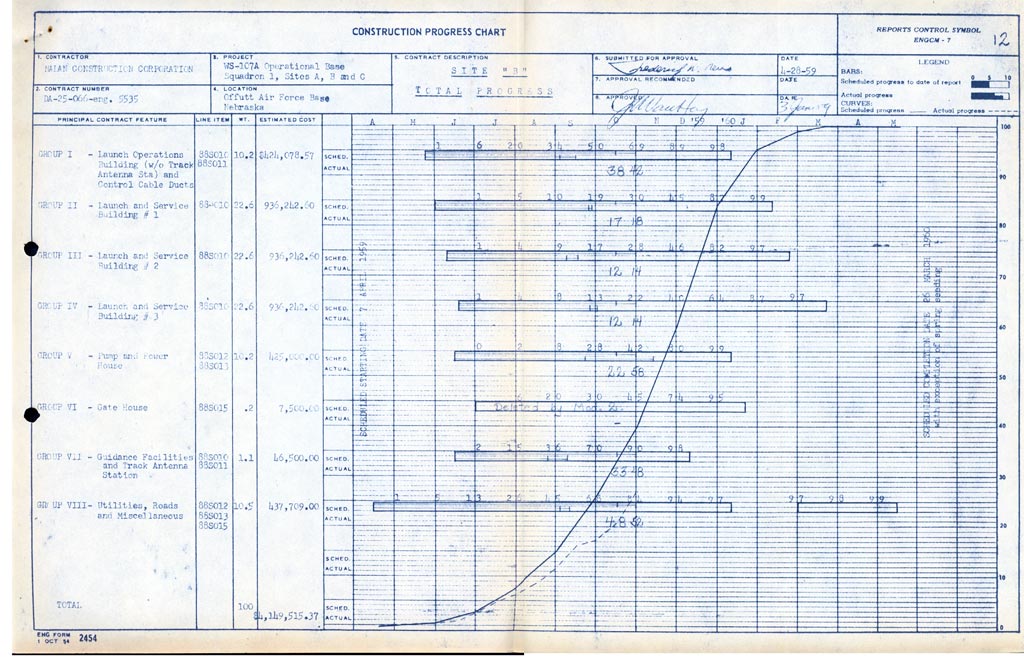 CONSTRUCTION PROGRESS CHART
REPORTS CONTROL SYMBOL
ENGCM - 7
12
1. CONTRACTOR
MALAN CONSTRUCTION CORPORATION
2. CONTRACT NUMBER
DA-25-066-eng. 5535
3. PROJECT
WS-107A Operational Base
Squadron 1, Sites A, B and C
4. LOCATION
Offutt Air Force Base
Nebraska
5. CONTRACT DESCRIPTION
SITE "B"
TOTAL PROGRESS
6. SUBMITTED FOR APPROVAL
DATE
4-28-59
7. APPROVAL RECOMMENDED
DATE
8. APPROVED
DATE
LEGEND
BARS:
Scheduled progress to date of report
Actual progress
CURVES:
Scheduled progress Actual progress
0 5 10
PRINCIPAL CONTRACT FEATURE LINE ITEM WT. ESTIMATED COST
A M J J A S O N D '59 '60 J F M A M
GROUP I - Launch Operations 88S010 10.2 $424,078.57 SCHED.
Building (w/o Track 88S011 ACTUAL
Antenna Sta) and
Control Cable Ducts
1 6 20 34 50 69 89 98
38 42
GROUP II - Launch and Service 88S010 22.6 936,242.60 SCHED.
Building # 1 ACTUAL
1 5 10 19 30 45 87 99
17 18
GROUP III - Launch and Service 88S010 22.6 936,242.60 SCHED.
Building # 2 ACTUAL
1 4 9 17 28 46 82 97
12 14
GROUP IV - Launch and Service 88S010 22.6 936,242.60 SCHED.
Building # 3 ACTUAL
1 4 8 13 22 40 64 87 97
12 14
GROUP V - Pump and Power 88S012 10.2 425,000.00 SCHED.
House 88S013 ACTUAL
0 2 8 28 42 60 99
22 58
GROUP VI - Gate House 88S015 .2 7,500.00 SCHED.
ACTUAL
Deleted by Mod.
GROUP VII - Guidance Facilities 88S010 1.1 46,500.00 SCHED.
and Track Antenna 88S011 ACTUAL
Station
2 15 36 70 90 98
33 48
GROUP VIII - Utilities, Roads 88S012 10.5 437,709.00 SCHED.
and Miscellaneous 88S013 ACTUAL
88S015
1 5 13 26 45 94 97 97 98 99
48 52
SCHED.
ACTUAL
TOTAL 100 $4,149,515.37 SCHED.
ACTUAL
SCHEDULED STARTING DATE 7 APRIL 1959
SCHEDULED COMPLETION DATE 26 MARCH 1960
with exception of spring seeding
100
90
80
70
60
50
40
30
20
10
0
ENG FORM 2454
1 OCT 54